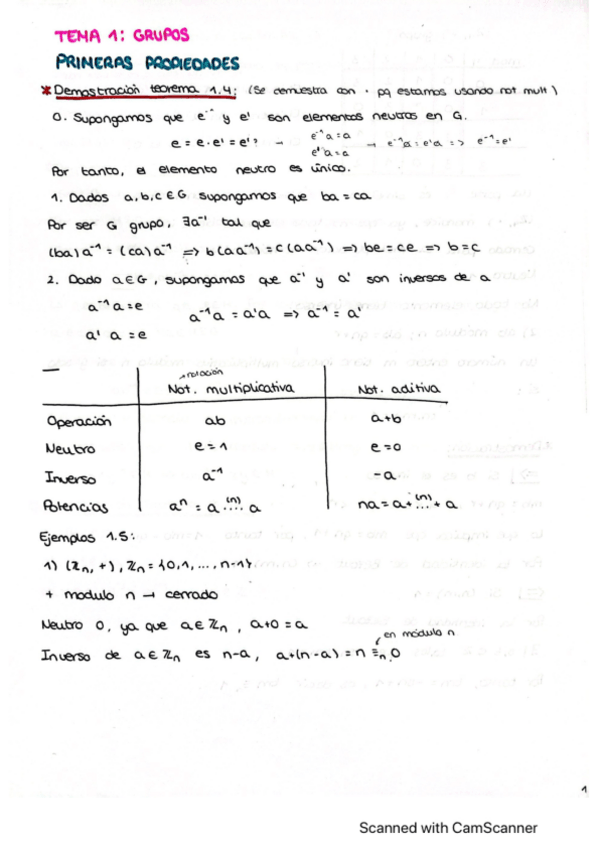 TEMA 1: GRUPOS
PRIMERAS PROPIEDADES
* Demostración teorema 1.4: (Se demuestra con · pq estamos usando not mult)
0. Supongamos que e⁻¹ y e' son elementos neutros en G.
e = e·e' = e'? → e⁻¹a = a → e⁻¹a = e'a => e⁻¹ = e'
e'a = a
Por tanto, el elemento neutro es único.
1. Dados a,b,c ∈ G supongamos que ba = ca
Por ser G grupo, ∃a⁻¹ tal que
(ba)a⁻¹ = (ca)a⁻¹ => b(aa⁻¹) = c(aa⁻¹) => be = ce => b = c
2. Dado a ∈ G, supongamos que a⁻¹ y a' son inversos de a
a⁻¹a = e
a⁻¹a = a'a => a⁻¹ = a'
a' a = e
notación
Not. multiplicativa Not. aditiva
Operación ab a+b
Neutro e = 1 e = 0
Inverso a⁻¹ -a
Potencias aⁿ = a .(n). a na = a+ .(n). + a
Ejemplos 1.5:
1) (ℤn, +), ℤn = {0,1, ..., n-1}
+ modulo n → cerrado
Neutro 0, ya que a ∈ ℤn, a+0 = a
en módulo n
Inverso de a ∈ ℤn es n-a, a+(n-a) = n ≡n 0
1
Scanned with CamScanner